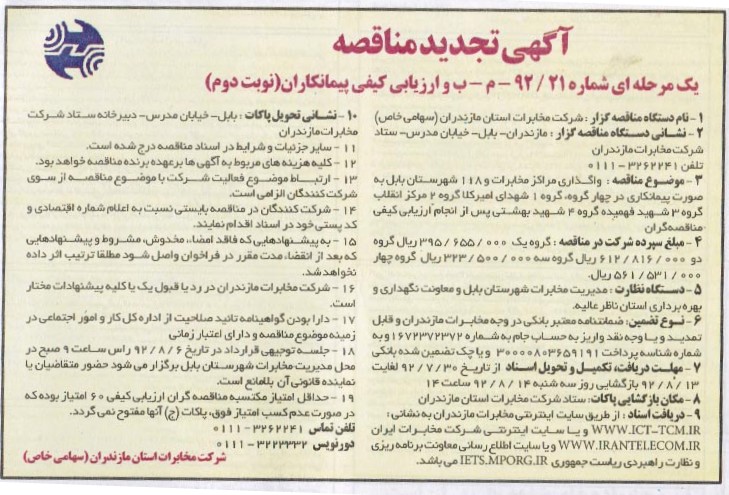 آگهی تجدید مناقصه
یک مرحله ای شماره ۲۱ / ۹۲ - م - ب و ارزیابی کیفی پیمانکاران (نوبت دوم)
۱ - نام دستگاه مناقصه گزار : شرکت مخابرات استان مازندران (سهامی خاص)
۲ - نشانی دستگاه مناقصه گزار : مازندران- بابل- خیابان مدرس- ستاد
شرکت مخابرات مازندران
تلفن ۳۲۶۲۲۴۱ - ۰۱۱۱
۳ - موضوع مناقصه : واگذاری مراکز مخابرات و ۱۱۸ شهرستان بابل به
صورت پیمانکاری در چهار گروه، گروه ۱ شهدای امیرکلا گروه ۲ مرکز انقلاب
گروه ۳ شهید فهمیده گروه ۴ شهید بهشتی پس از انجام ارزیابی کیفی
مناقصه گران
۴ - مبلغ سپرده شرکت در مناقصه : گروه یک ۳۹۵/۶۵۵/۰۰۰ ریال گروه
دو ۶۱۲/۸۱۶/۰۰۰ ریال گروه سه ۳۲۳/۵۰۰/۰۰۰ ریال گروه چهار
۵۶۱/۵۳۱/۰۰۰ ریال.
۵ - دستگاه نظارت : مدیریت مخابرات شهرستان بابل و معاونت نگهداری و
بهره برداری استان ناظر عالیه.
۶ - نوع تضمین : ضمانتنامه معتبر بانکی در وجه مخابرات مازندران و قابل
تمدید و یا وجه نقد واریز به حساب جام به شماره ۱۶۷۲۳۷۲۳۷۲ و به
شماره شناسه پرداخت ۳۰۰۰۰۸۰۳۶۵۹۱۹۱ و یا چک تضمین شده بانکی
۷ - مهلت دریافت، تکمیل و تحویل اسناد : از تاریخ ۹۲/۷/۳۰ لغایت
۹۲/۸/۱۳ بازگشایی روز سه شنبه ۹۲/۸/۱۴ ساعت ۱۴
۸ - مکان بازگشایی پاکات : ستاد شرکت مخابرات استان مازندران
۹ - دریافت اسناد : از طریق سایت اینترنتی مخابرات مازندران به نشانی :
WWW.ICT-TCM.IR و یا سایت اینترنتی شرکت مخابرات ایران
WWW.IRANTELECOM.IR و یا سایت اطلاع رسانی معاونت برنامه ریزی
و نظارت راهبردی ریاست جمهوری IETS.MPORG.IR می باشد.
۱۰ - نشانی تحویل پاکات : بابل- خیابان مدرس- دبیرخانه ستاد شرکت
مخابرات مازندران
۱۱ - سایر جزئیات و شرایط در اسناد مناقصه درج شده است.
۱۲ - کلیه هزینه های مربوط به آگهی ها بر عهده برنده مناقصه خواهد بود.
۱۳ - ارتباط موضوع فعالیت شرکت با موضوع مناقصه از سوی
شرکت کنندگان الزامی است.
۱۴ - شرکت کنندگان در مناقصه بایستی نسبت به اعلام شماره اقتصادی و
کد پستی خود در اسناد اقدام نمایند.
۱۵ - به پیشنهادهایی که فاقد امضاء، مخدوش، مشروط و پیشنهادهایی
که بعد از انقضاء مدت مقرر در فراخوان واصل شود مطلقا ترتیب اثر داده
نخواهد شد.
۱۶ - شرکت مخابرات مازندران در رد یا قبول یک یا کلیه پیشنهادات مختار
است.
۱۷ - دارا بودن گواهینامه تائید صلاحیت از اداره کل کار و امور اجتماعی در
زمینه موضوع مناقصه و دارای اعتبار زمانی
۱۸ - جلسه توجیهی قرارداد در تاریخ ۹۲/۸/۶ راس ساعت ۹ صبح در
محل مدیریت مخابرات شهرستان بابل برگزار می شود حضور متقاضیان یا
نماینده قانونی آن بلامانع است.
۱۹ - حداقل امتیاز مکتسبه مناقصه گران ارزیابی کیفی ۶۰ امتیاز بوده که
در صورت عدم کسب امتیاز فوق، پاکات (ج) آنها مفتوح نمی گردد.
تلفن تماس ۳۲۶۲۲۴۱ - ۰۱۱۱
دورنویس ۳۲۲۳۳۳۲ - ۰۱۱۱
شرکت مخابرات استان مازندران (سهامی خاص)